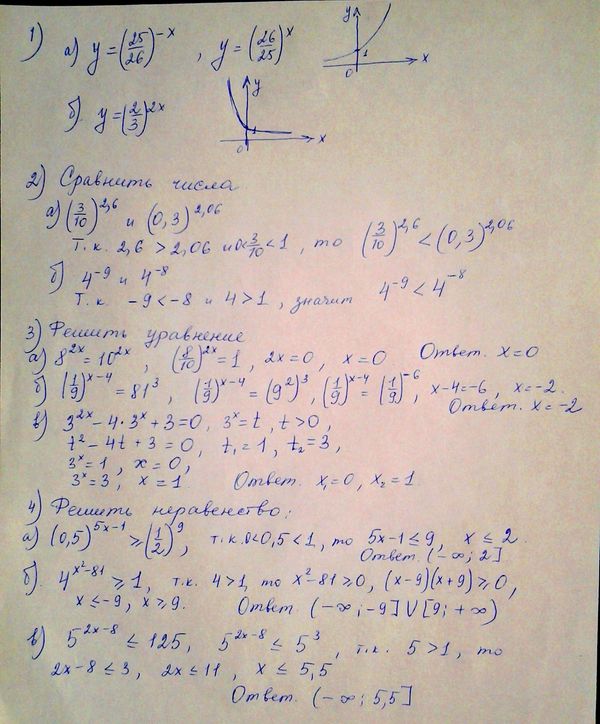 1) а) y = (25/26)^-x , y = (26/25)^x
y
1
0
x
б) y = (2/3)^2x
y
1
0
x
2) Сравнить числа
а) (3/10)^2,6 и (0,3)^2,06
Т.к. 2,6 > 2,06 и 0<3/10<1, то (3/10)^2,6 < (0,3)^2,06
б) 4^-9 и 4^-8
Т.к. -9 < -8 и 4 > 1, значит 4^-9 < 4^-8
3) Решить уравнение
а) 8^2x = 10^2x, (8/10)^2x = 1, 2x = 0, x = 0 Ответ. x = 0
б) (1/9)^x-4 = 81^3, (1/9)^x-4 = (9^2)^3, (1/9)^x-4 = (1/9)^-6, x-4=-6, x=-2.
Ответ. x = -2
в) 3^2x - 4·3^x + 3 = 0, 3^x = t, t > 0,
t^2 - 4t + 3 = 0, t₁ = 1, t₂ = 3,
3^x = 1, x = 0,
3^x = 3, x = 1 Ответ. x₁ = 0, x₂ = 1.
4) Решить неравенство:
а) (0,5)^5x-1 ≥ (1/2)^9, т.к. 0<0,5<1, то 5x-1 ≤ 9, x ≤ 2.
Ответ (-∞; 2]
б) 4^x²-81 ≥ 1, т.к. 4>1, то x²-81 ≥ 0, (x-9)(x+9) ≥ 0,
x ≤ -9, x ≥ 9. Ответ. (-∞; -9] U [9; +∞)
в) 5^2x-8 ≤ 125, 5^2x-8 ≤ 5^3, т.к. 5 > 1, то
2x-8 ≤ 3, 2x ≤ 11, x ≤ 5,5
Ответ. (-∞; 5,5]